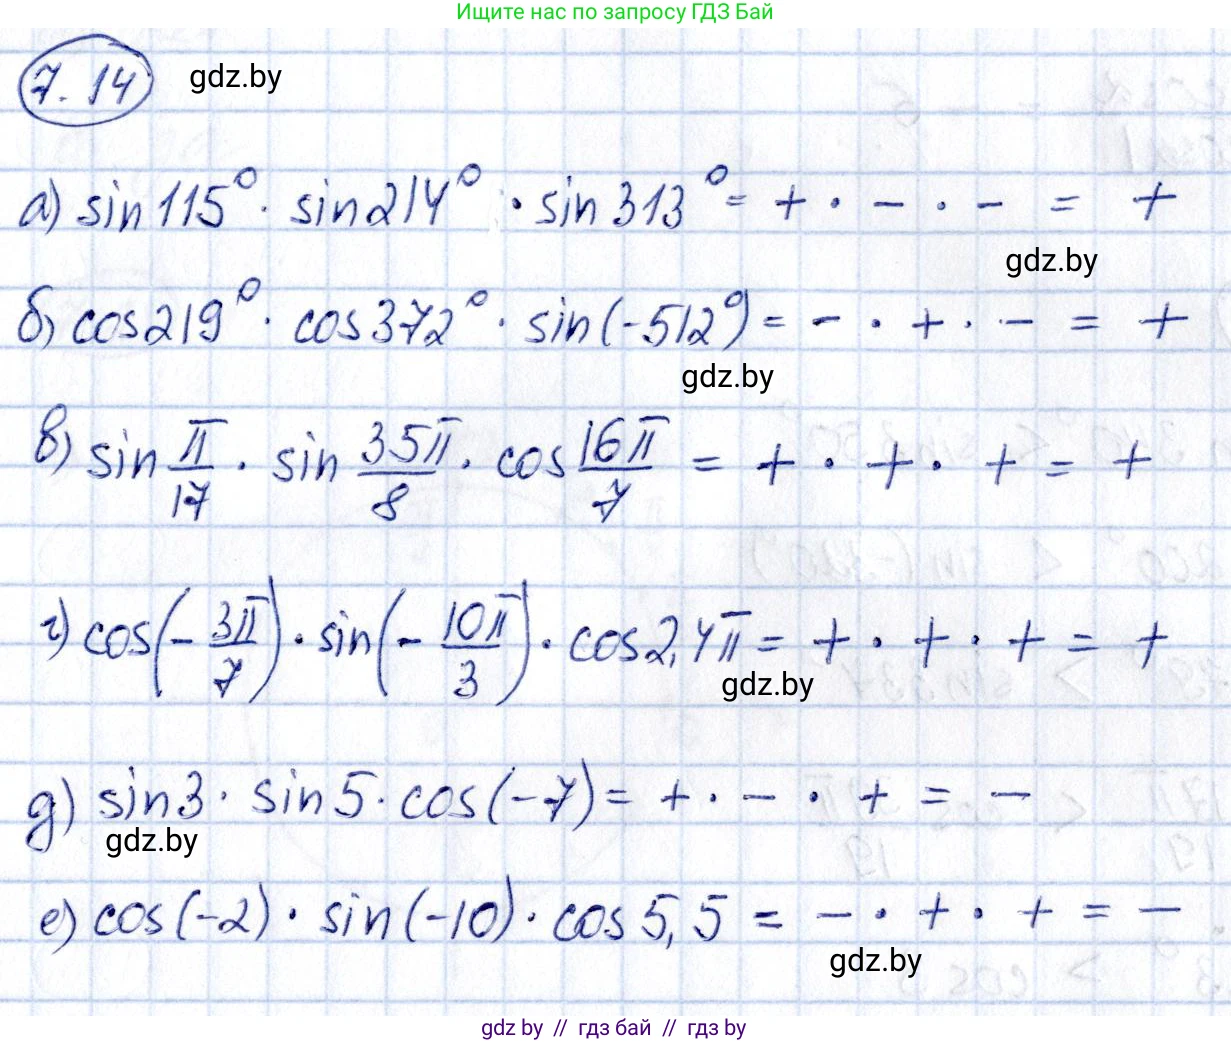 Ищите нас по запросу ГДЗ Бай
7.14 gdz.by
а) sin 115° · sin 214° · sin 313° = + · - · - = +
gdz.by
б) cos 219° · cos 372° · sin(-512°) = - · + · - = +
gdz.by
в) sin π/17 · sin 35π/8 · cos 16π/7 = + · + · + = +
г) cos(-3π/7) · sin(-10π/3) · cos 2,4π = + · + · + = +
gdz.by
д) sin 3 · sin 5 · cos(-7) = + · - · + = -
gdz.by
е) cos(-2) · sin(-10) · cos 5,5 = - · + · + = -
gdz.by
gdz by // гдз бай // гдз by